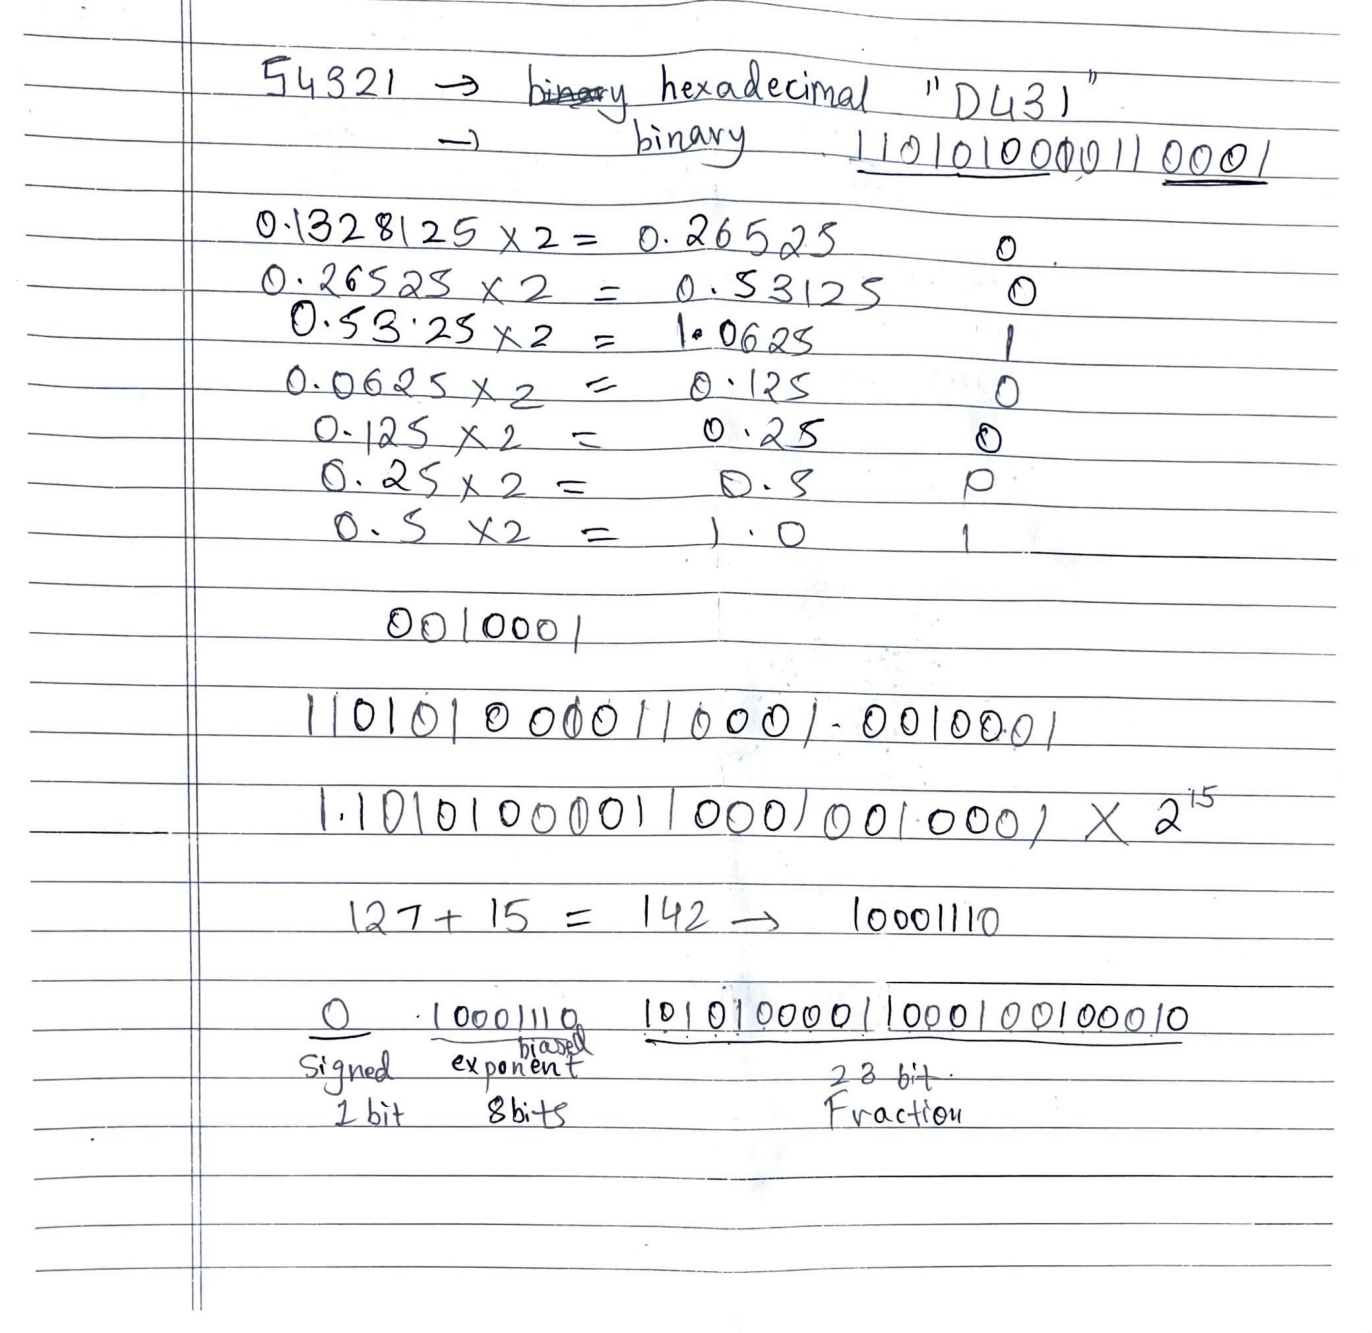 54321 → binary hexadecimal "D431"
→ binary 1101010000110001
0.1328125 × 2 = 0.26525 0
0.26525 × 2 = 0.53125 0
0.53.25 × 2 = 1.0625 1
0.0625 × 2 = 0.125 0
0.125 × 2 = 0.25 0
0.25 × 2 = 0.5 0
0.5 × 2 = 1.0 1
0010001
1101010000110001.0010001
1.1010100001100010010001 × 2^15
127 + 15 = 142 → 10001110
0 10001110 10101000011000100100010
signed biased exponent 23 bit
1 bit 8 bits Fraction